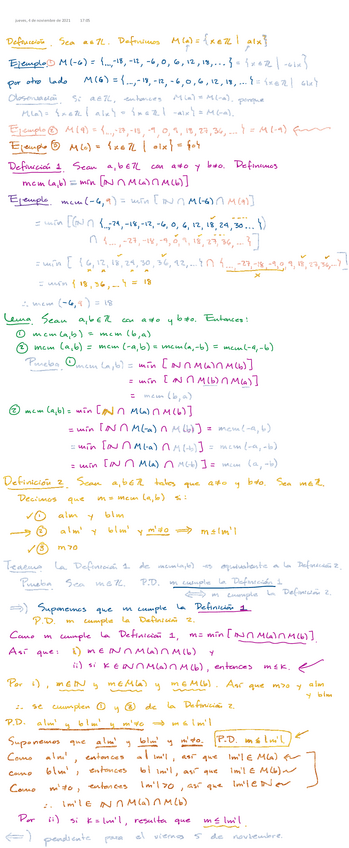 jueves, 4 de noviembre de 2021 17:05
Definición. Sea a∈ℤ. Definimos M(a) = {x∈ℤ | a|x}
Ejemplo① M(-6) = {...,-18,-12,-6,0,6,12,18,...} = {x∈ℤ | -6|x}
por otro lado M(6) = {...,-18,-12,-6,0,6,12,18,...} = {x∈ℤ | 6|x}
Observación: Si a∈ℤ, entonces M(a) = M(-a), porque
M(a) = {x∈ℤ | a|x} = {x∈ℤ | -a|x} = M(-a).
Ejemplo② M(9) = {...,-27,-18,-9,0,9,18,27,36,...} = M(-9)
Ejemplo③ M(0) = {x∈ℤ | 0|x} = {0}
Definición 1. Sean a,b∈ℤ con a≠0 y b≠0. Definimos
mcm(a,b) = mín [ℕ∩M(a)∩M(b)]
Ejemplo. mcm(-6,9) = mín [ℕ∩M(-6)∩M(9)]
= mín [(ℕ∩{...,-24,-18,-12,-6,0,6,12,18,24,30,...})
∩ {...,-27,-18,-9,0,9,18,27,36,...}]
= mín [{6,12,18,24,30,36,42,...} ∩ {...,-27,-18,-9,0,9,18,27,36,...}]
= mín {18,36,...} = 18
∴ mcm(-6,9) = 18
Lema. Sean a,b∈ℤ con a≠0 y b≠0. Entonces:
① mcm(a,b) = mcm(b,a)
② mcm(a,b) = mcm(-a,b) = mcm(a,-b) = mcm(-a,-b)
Prueba ① mcm(a,b) = mín [ℕ∩M(a)∩M(b)]
= mín [ℕ∩M(b)∩M(a)]
= mcm(b,a)
② mcm(a,b) = mín [ℕ∩M(a)∩M(b)]
= mín [ℕ∩M(-a)∩M(b)] = mcm(-a,b)
= mín [ℕ∩M(-a)∩M(-b)] = mcm(-a,-b)
= mín [ℕ∩M(a)∩M(-b)] = mcm(a,-b)
Definición 2. Sean a,b∈ℤ tales que a≠0 y b≠0. Sea m∈ℤ.
Decimos que m = mcm(a,b) si:
✓① a|m y b|m
→② a|m' y b|m' y m'≠0 ⟹ m≤|m'|
✓③ m>0
Teorema La Definición 1 de mcm(a,b) es equivalente a la Definición 2.
Prueba Sea m∈ℤ. P.D. m cumple la Definición 1
⟺ m cumple la Definición 2.
⟹) Suponemos que m cumple la Definición 1
P.D. m cumple la Definición 2.
Como m cumple la Definición 1, m = mín [ℕ∩M(a)∩M(b)].
Así que: i) m∈ℕ∩M(a)∩M(b) y
ii) si k∈ℕ∩M(a)∩M(b), entonces m≤k.
Por i), m∈ℕ y m∈M(a) y m∈M(b). Así que m>0 y a|m
y b|m
∴ se cumplen ① y ③ de la Definición 2.
P.D. a|m' y b|m' y m'≠0 ⟹ m≤|m'|
Suponemos que a|m' y b|m' y m'≠0. P.D. m≤|m'|
Como a|m', entonces a||m'|, así que |m'|∈M(a)
Como b|m', entonces b||m'|, así que |m'|∈M(b)
Como m'≠0, entonces |m'|>0, así que |m'|∈ℕ
∴ |m'|∈ℕ∩M(a)∩M(b)
Por ii) si k=|m'|, resulta que m≤|m'|.
⟸) pendiente para el viernes 5 de noviembre.